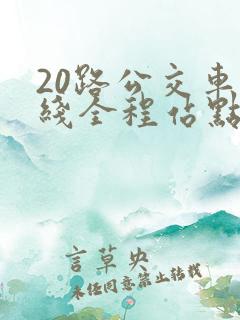 20路公交車
綫全程佔點
言草央
未经同意禁止转载